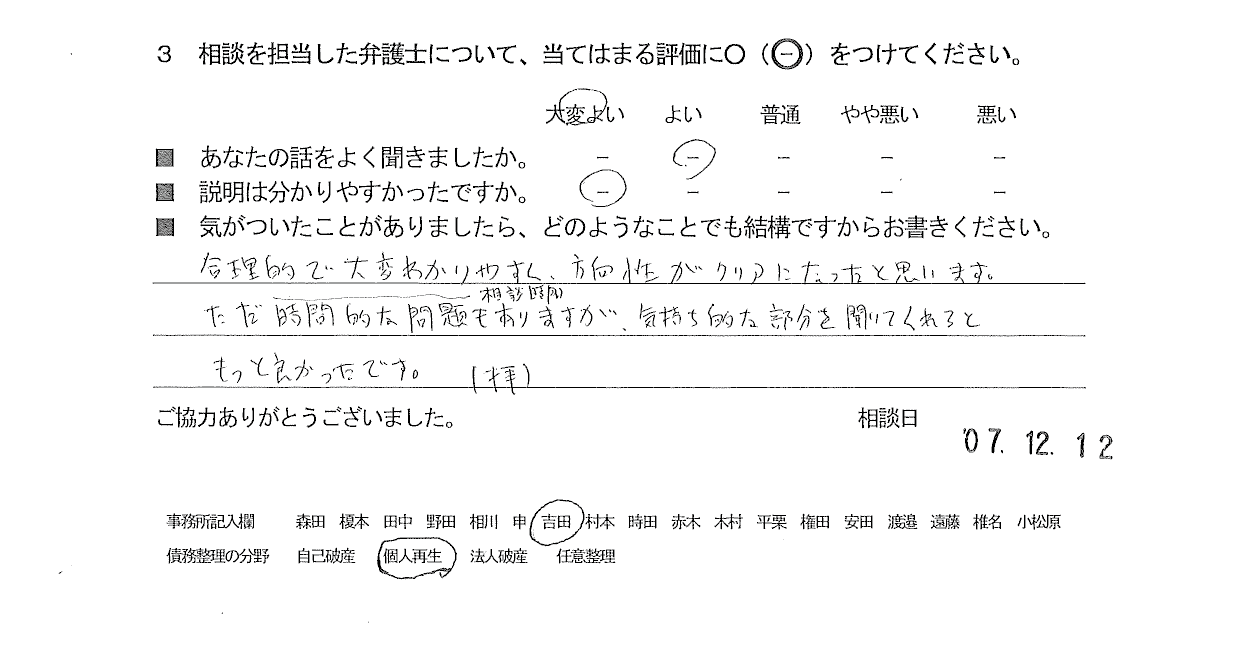 3 相談を担当した弁護士について、当てはまる評価に○（㊀）をつけてください。
大変よい よい 普通 やや悪い 悪い
■ あなたの話をよく聞きましたか。 － － － － －
■ 説明は分かりやすかったですか。 － － － － －
■ 気がついたことがありましたら、どのようなことでも結構ですからお書きください。
合理的で大変わかりやすく、方向性がクリアになったと思います。
相談時間
ただ時間的な問題もありますが、気持ち的な部分を聞いてくれると
もっと良かったです。 (拝)
ご協力ありがとうございました。 相談日
'07. 12. 12
事務所記入欄 森田 榎本 田中 野田 相川 申 吉田 村本 時田 赤木 木村 平栗 権田 安田 渡邉 遠藤 椎名 小松原
債務整理の分野 自己破産 個人再生 法人破産 任意整理